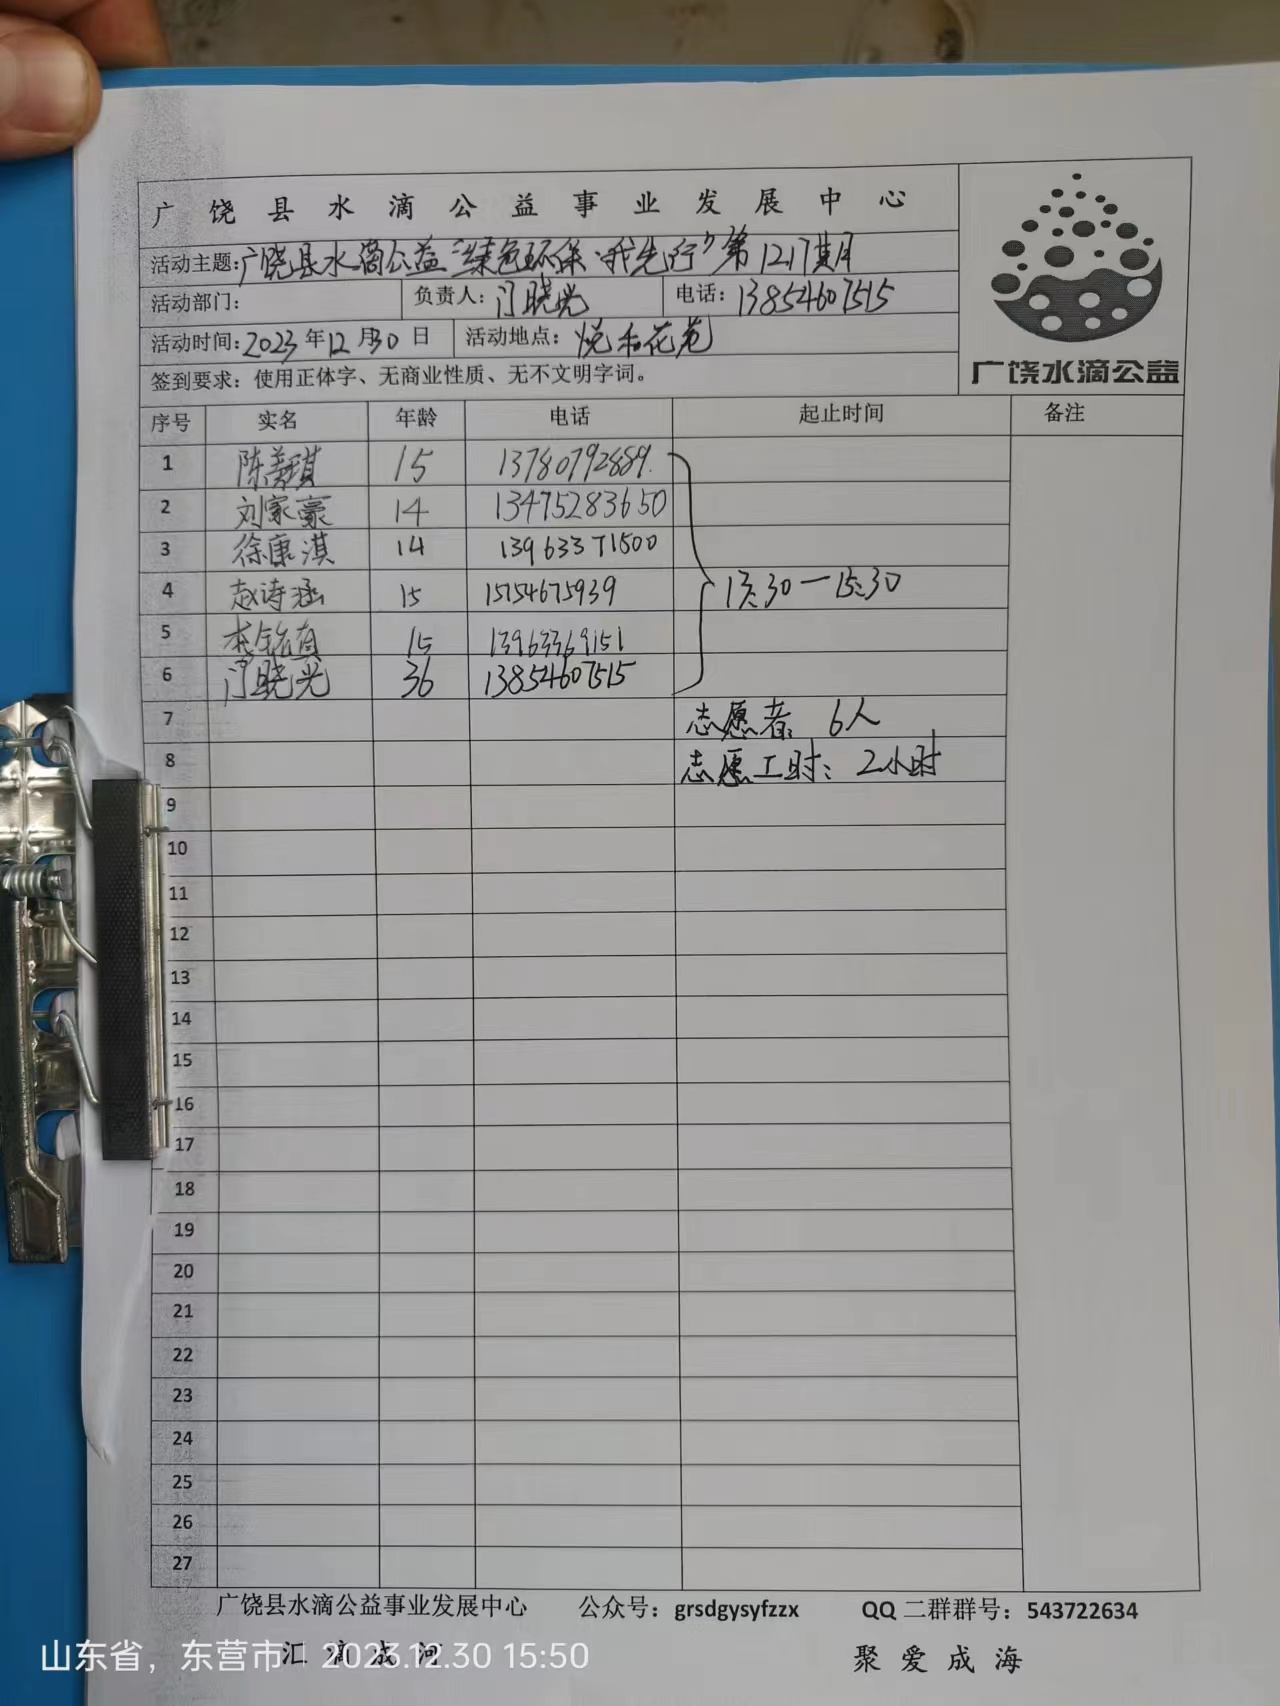 广饶县水滴公益事业发展中心
活动主题:广饶县水滴公益“绿色环保·我先行”第1217期
活动部门: 负责人:门晓光 电话:13854607515
活动时间:2023年12月30日 活动地点:悦和花苑
签到要求：使用正体字、无商业性质、无不文明字词。
广饶水滴公益
序号 实名 年龄 电话 起止时间 备注
1 陈美琪 15 13780792889.
2 刘家豪 14 13475283650
3 徐康淇 14 13963371500
4 赵诗涵 15 15154675939 13:30—15:30
5 15 13963369151
6 门晓光 36 13854607515
7 志愿者: 6人
8 志愿工时: 2小时
9
10
11
12
13
14
15
16
17
18
19
20
21
22
23
24
25
26
27
广饶县水滴公益事业发展中心 公众号：grsdgysyfzzx QQ二群群号：543722634
汇滴成河 聚爱成海
山东省，东营市 2023.12.30 15:50